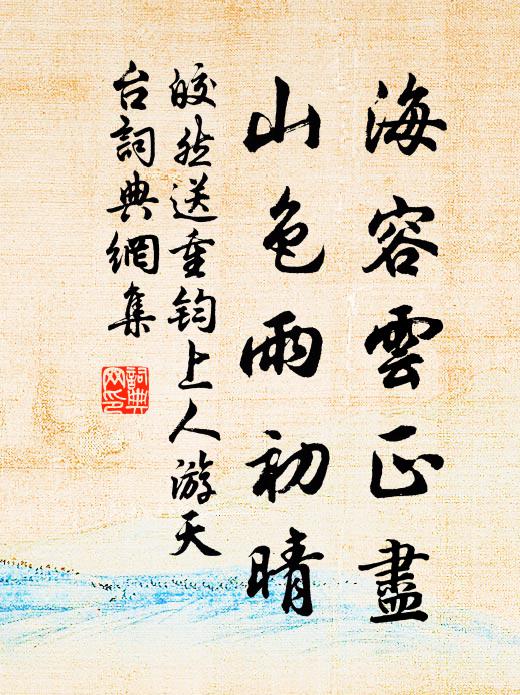 海容雲正盡
山色雨初晴
皎然送重钧上人游天
台詞典網集
詞典网印